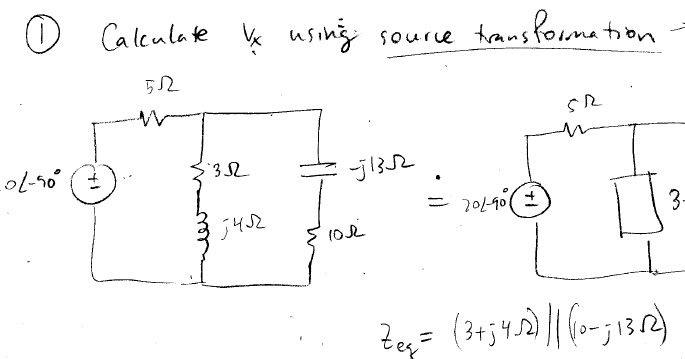 ① Calculate Vx using source transformation
5Ω
0∠-90° ± 3Ω -j13Ω
j4Ω 10Ω
=
5Ω
20∠-90° ± 3
Zeq = (3+j4Ω)||(10-j13Ω)